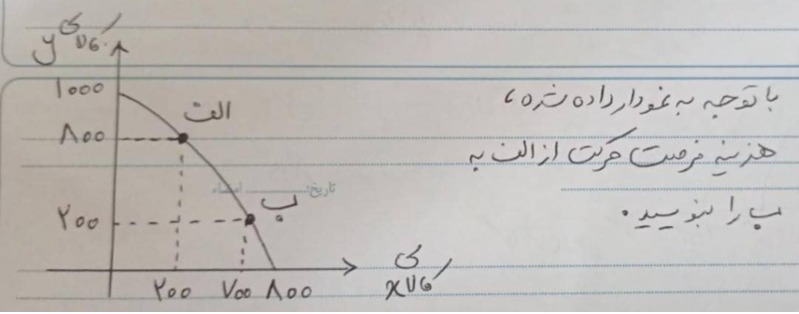 کالای y
۱۰۰۰
الف
۸۰۰
ب
۲۰۰
۲۰۰ ۷۰۰ ۸۰۰
کالای x
با توجه به نمودار داده شده،
هزینه فرصت حرکت از الف به
ب را بنویسید.
تاریخ: امضاء